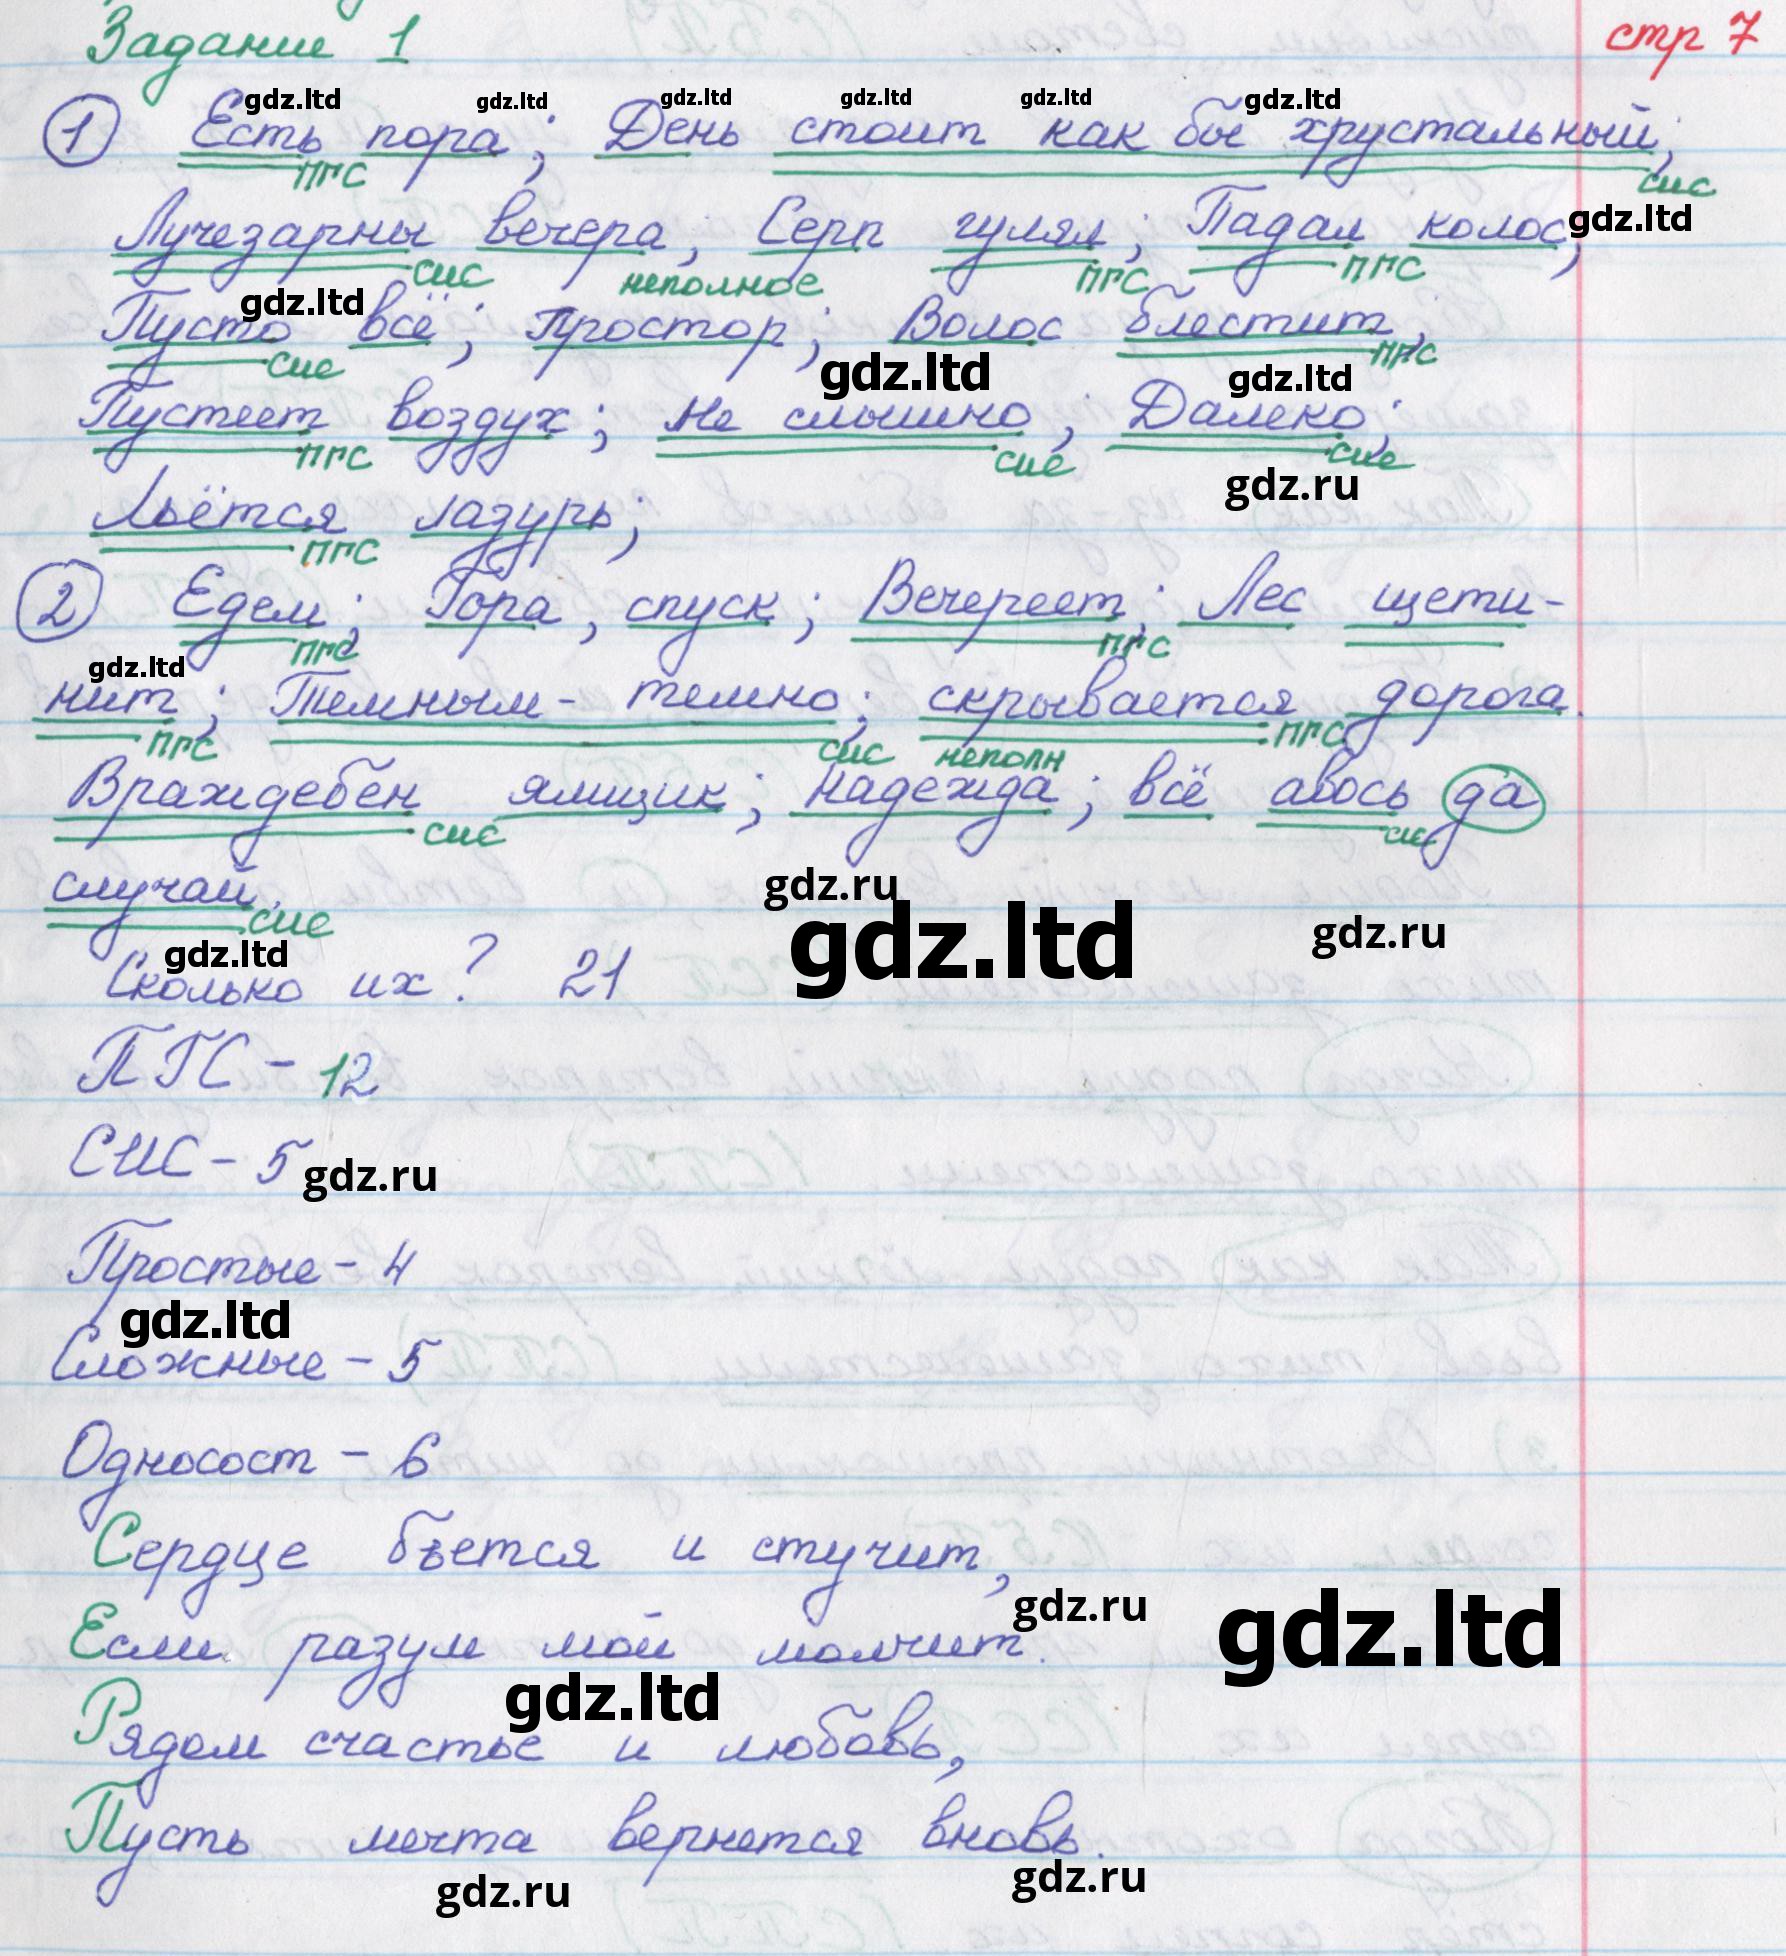 Задание 1 стр 7
gdz.ltd gdz.ltd gdz.ltd gdz.ltd gdz.ltd gdz.ltd
1 Есть пора; День стоит как бы хрустальный;
ПГС СИС
Лучезарны вечера; Серп гулял; Падал колос; gdz.ltd
СИС неполное ПГС ПГС
gdz.ltd
Пусто всё; простор; Волос блестит;
СИС gdz.ltd gdz.ltd ПГС
Пустеет воздух; Не слышно; Далеко;
ПГС СИС СИС
gdz.ru
Льётся лазурь;
ПГС
2 Едем; Гора, спуск; Вечереет; Лес щети-
ПГС ПГС
gdz.ltd
нит; Темным-темно; скрывается дорога.
ПГС СИС неполн ПГС
Враждебен ямщик; надежда; всё авось да
СИС СИС
случай. gdz.ru
СИС
gdz.ltd gdz.ltd gdz.ru
Сколько их? 21
ПГС - 12
СИС - 5 gdz.ru
Простые - 4
gdz.ltd
Сложные - 5
Односост - 6
Сердце бьется и стучит,
gdz.ru gdz.ltd
Если разум мой молчит.
gdz.ltd
Рядом счастье и любовь,
Пусть мечта вернется вновь.
gdz.ru gdz.ru